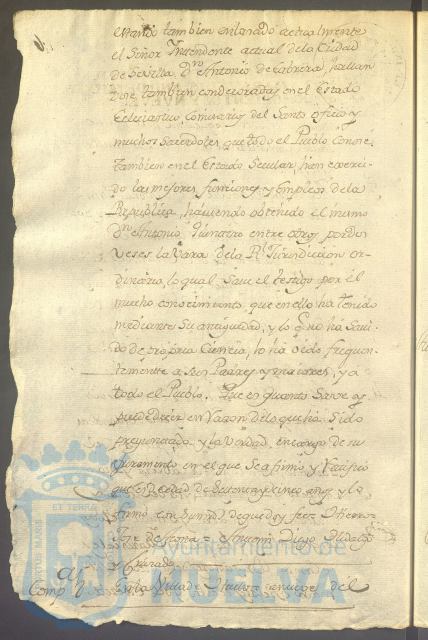 estando tambien enlazado actualmente
el Señor Yntendente actual de la Ciudad
de Sevilla Dn Antonio de Cabrera, hallan
dose tambien condecoradas en el Estado
Eclesiastico, Comisarios del Santo Oficio y
muchos Sacerdotes, que todo el Pueblo Conose.
tambien en el Estado Secular, han exerci-
do las mejores funciones y Empleos de la
Republica, haviendo obtenido el mismo
Dn Antonio Quinttero entre otros por dos
veses la Vara de la Rl Jurisdiccion or-
dinaria, lo qual save el testigo por el
mucho conocimiento, que en ello ha tenido
mediante su antiguedad, y lo q no ha savi-
do de propria Ciencia, lo ha oido frequen-
temente a sus Padres y maiores, y a
todo el Pueblo. Que es quanto save y
puede decir en razon de lo que ha sido
preguntado y la verdad, en cargo de su
juramento en el que se afirmó y ratificó
que es de edad de setenta y cinco años y lo
firmó con su md. de que doy fee=
de Soma = Antonio Diego Hidalgo
y Quixada
En la Villa de Huelva en nueve del
ET TERRAE
Ayuntamiento de
HUELVA